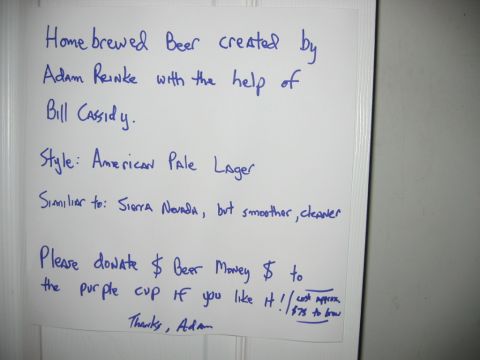 Homebrewed Beer created by
Adam Reinke with the help of
Bill Cassidy.
Style: American Pale Lager
Similiar to: Sierra Nevada, but smoother, cleaner
Please donate $ Beer Money $ to
the purple cup if you like it! / cost approx.
$75 to brew
Thanks, Adam